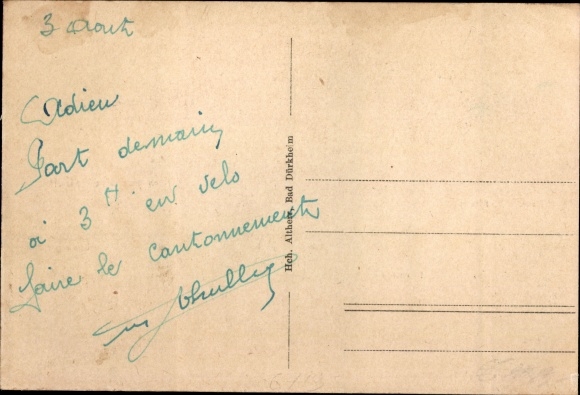 3 Aout
Adieu
Part demain
à 3 H en velo
faire le cantonnement
Hch. Althen, Bad Dürkheim